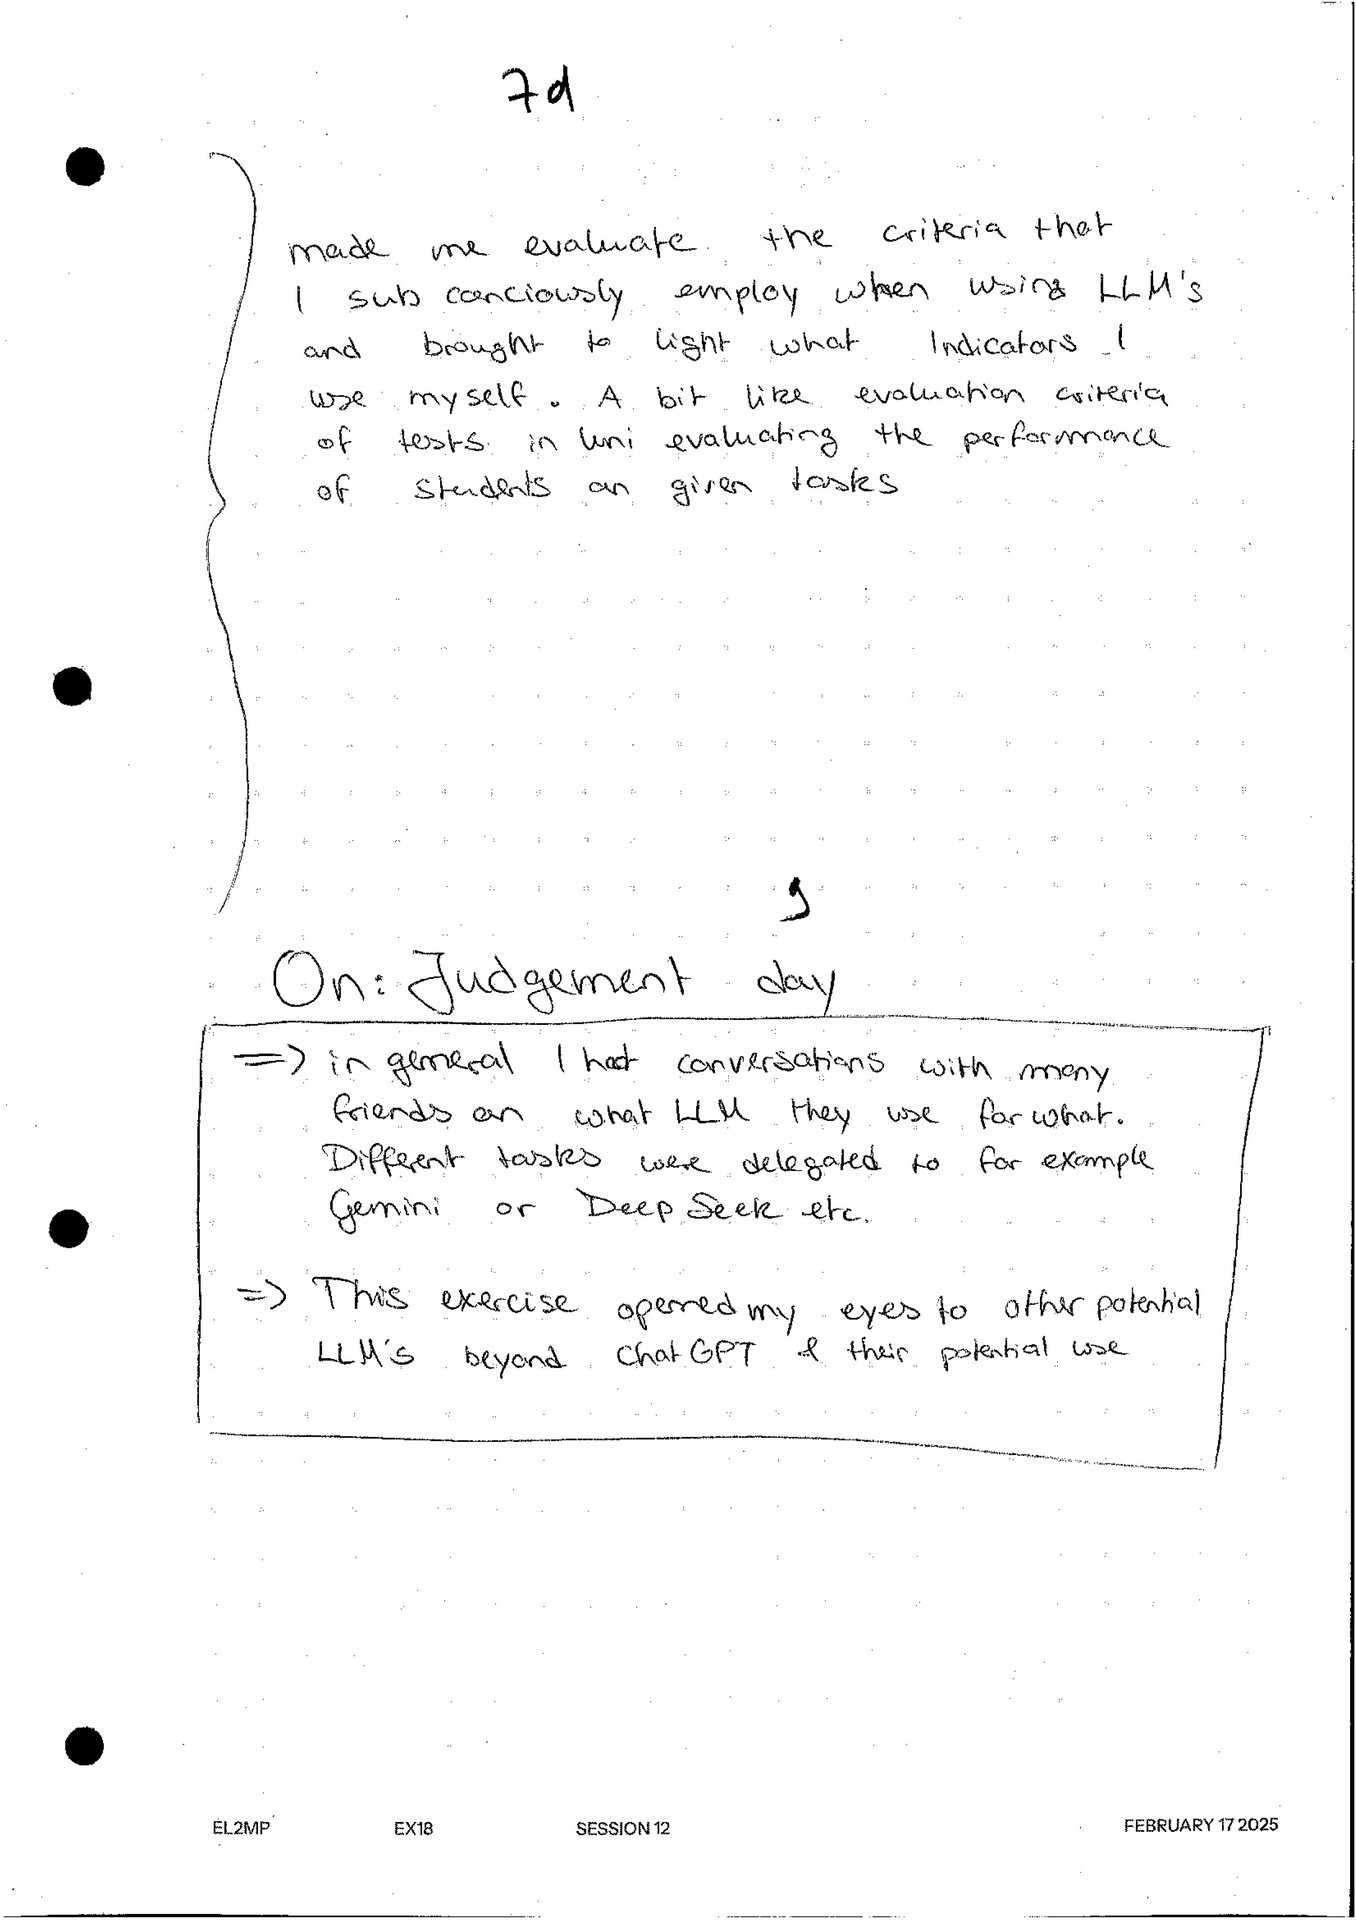 7d
made me evaluate the criteria that
I sub conciously employ when using LLM's
and brought to light what Indicators I
use myself. A bit like evaluation criteria
of tests in Uni evaluating the performance
of students on given tasks
9
On: Judgement day
=> in general I had conversations with many
friends on what LLM they use for what.
Different tasks were delegated to for example
Gemini or DeepSeek etc.
=> This exercise opened my eyes to other potential
LLM's beyond ChatGPT & their potential use
EL2MP EX18 SESSION 12 FEBRUARY 17 2025